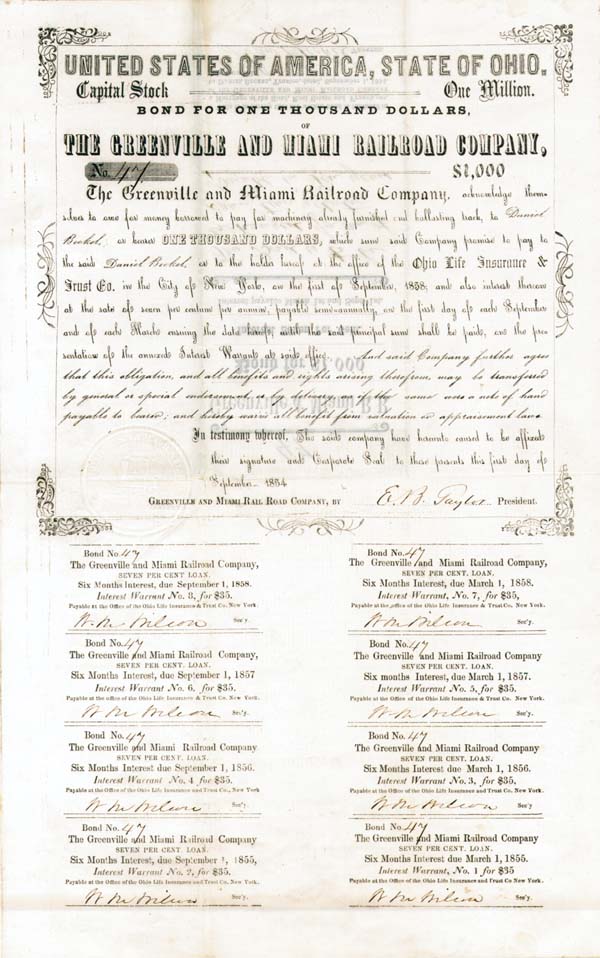 UNITED STATES OF AMERICA, STATE OF OHIO.
Capital Stock One Million.
BOND FOR ONE THOUSAND DOLLARS,
OF
THE GREENVILLE AND MIAMI RAILROAD COMPANY,
No. 47 $1,000
The Greenville and Miami Railroad Company, acknowledge them-
selves to owe for money borrowed to pay for machinery already furnished and ballasting track, to Daniel
Beckel, or bearer ONE THOUSAND DOLLARS, which sum said Company promise to pay to
the said Daniel Beckel, or to the holder hereof at the office of the Ohio Life Insurance &
Trust Co. in the City of New York, on the first of September, 1858; and also interest thereon
at the rate of seven per centum per annum, payable semi-annually, on the first day of each September
and of each March ensuing the date hereof, until the said principal sum shall be paid, on the pre-
sentation of the annexed Interest Warrants at said office. And said Company further agree
that this obligation, and all benefits and rights arising therefrom, may be transferred
by general or special endorsement, or by delivery, as if the same were a note of hand
payable to bearer; and hereby waive all benefit from valuation or appraisement laws.
In testimony whereof, The said company have hereunto caused to be affixed
their signature and Corporate Seal to these presents this first day of
September 1854
GREENVILLE AND MIAMI RAIL ROAD COMPANY, BY E. B. Taylor President.
Bond No. 47
The Greenville and Miami Railroad Company,
SEVEN PER CENT. LOAN.
Six Months Interest, due September 1, 1858.
Interest Warrant No. 8, for $35.
Payable at the Office of the Ohio Life Insurance & Trust Co. New York.
W. M. Wilson Sec'y.
Bond No. 47
The Greenville and Miami Railroad Company,
SEVEN PER CENT. LOAN.
Six Months Interest, due March 1, 1858.
Interest Warrant, No. 7, for $35,
Payable at the office of the Ohio Life Insurance & Trust Co. New York.
W M Wilson Sec'y.
Bond No. 47
The Greenville and Miami Railroad Company,
SEVEN PER CENT. LOAN.
Six Months Interest, due September 1, 1857
Interest Warrant No. 6. for $35.
Payable at the office of the Ohio Life Insurance & Trust Co. New York.
W M Wilson Sec'y.
Bond No. 47
The Greenville and Miami Railroad Company,
SEVEN PER CENT. LOAN.
Six months Interest, due March 1, 1857.
Interest Warrant No. 5, for $35.
Payable at the Office of the Ohio Life Insurance & Trust Co. New York.
W M Wilson Sec'y.
Bond No. 47
The Greenville and Miami Railroad Company
SEVEN PER CENT. LOAN.
Six Months Interest due September 1, 1856.
Interest Warrant No. 4 for $35.
Payable at the Office of the Ohio Life Insurance and Trust Co., New York
W M Wilson Sec'y
Bond No. 47
The Greenville and Miami Railroad Company
SEVEN PER CENT. LOAN.
Six Months Interest due March 1, 1856.
Interest Warrant No. 3, for $35,
Payable at the Office of the Ohio Life Insurance and Trust Co. New York.
W M Wilson Sec'y.
Bond No. 47
The Greenville and Miami Railroad Company
SEVEN PER CENT. LOAN.
Six Months Interest, due September 1, 1855,
Interest Warrant No. 2, for $35.
Payable at the Office of the Ohio Life Insurance and Trust Co. New York.
W M Wilson Sec'y.
Bond No. 47
The Greenville and Miami Railroad Company
SEVEN PER CENT. LOAN.
Six Months Interest due March 1, 1855.
Interest Warrant, No. 1 for $35
Payable at the Office of the Ohio Life Insurance and Trust Co New York.
W M Wilson Sec'y.